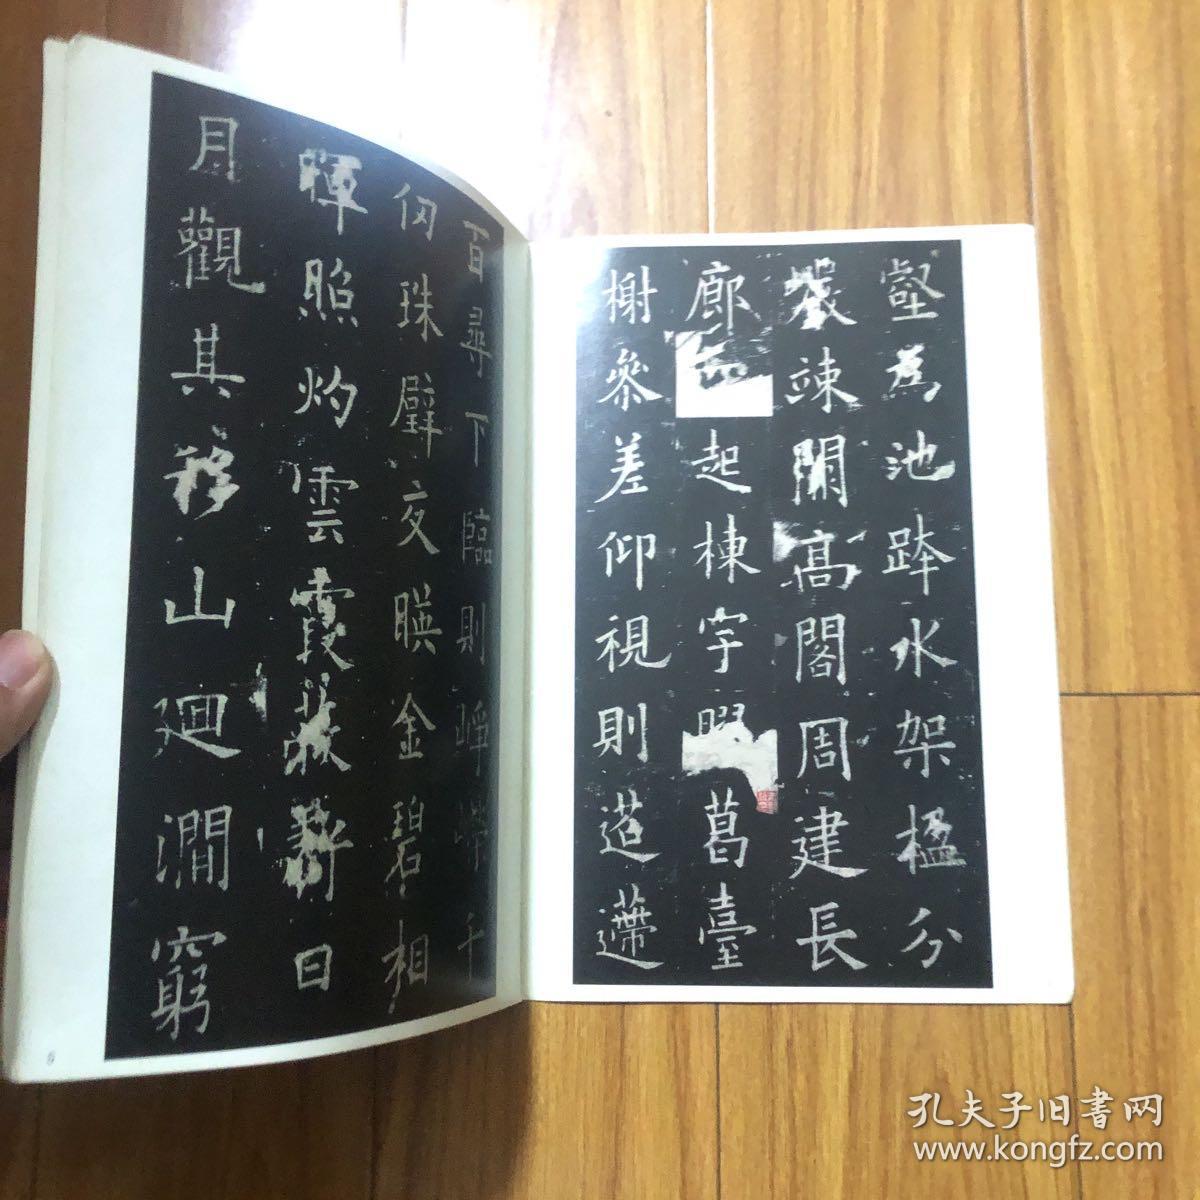 壑為池跨水架楹分
巖竦闕高閣周建長
廊起棟宇葛臺
榭參差仰視則迢遰
百尋下臨則崢嶸千
仞珠璧交暎金碧相
暉照灼雲霞蔽虧日
月觀其移山迴澗窮
孔夫子旧书网
www.kongfz.com